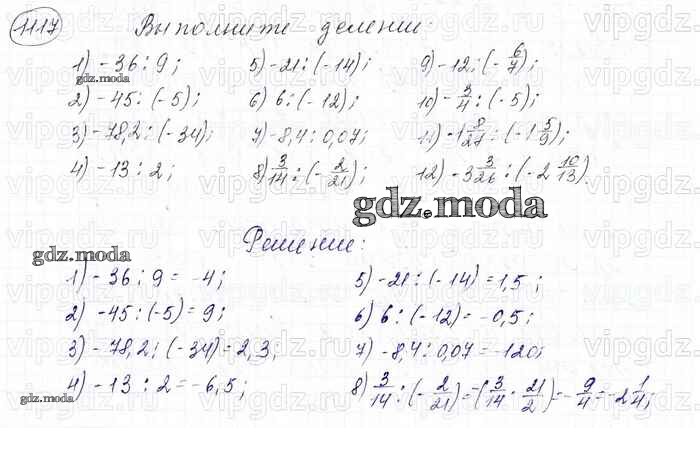 1117 Выполните деление:
1) -36 : 9; 5) -21 : (-14); 9) -12 : (-6/7);
2) -45 : (-5); 6) 6 : (-12); 10) -3/4 : (-5);
3) -78,2 : (-34); 7) -8,4 : 0,07; 11) -1 8/27 : (-1 5/9);
4) -13 : 2; 8) 3/14 : (-2/21); 12) -3 3/26 : (-2 10/13).
gdz.moda
Решение:
gdz.moda
1) -36 : 9 = -4; 5) -21 : (-14) = 1,5;
2) -45 : (-5) = 9; 6) 6 : (-12) = -0,5;
3) -78,2 : (-34) = 2,3; 7) -8,4 : 0,07 = -120;
4) -13 : 2 = -6,5; 8) 3/14 : (-2/21) = -(3/14 · 21/2) = -9/4 = -2 1/4;
gdz.moda
gdz.moda